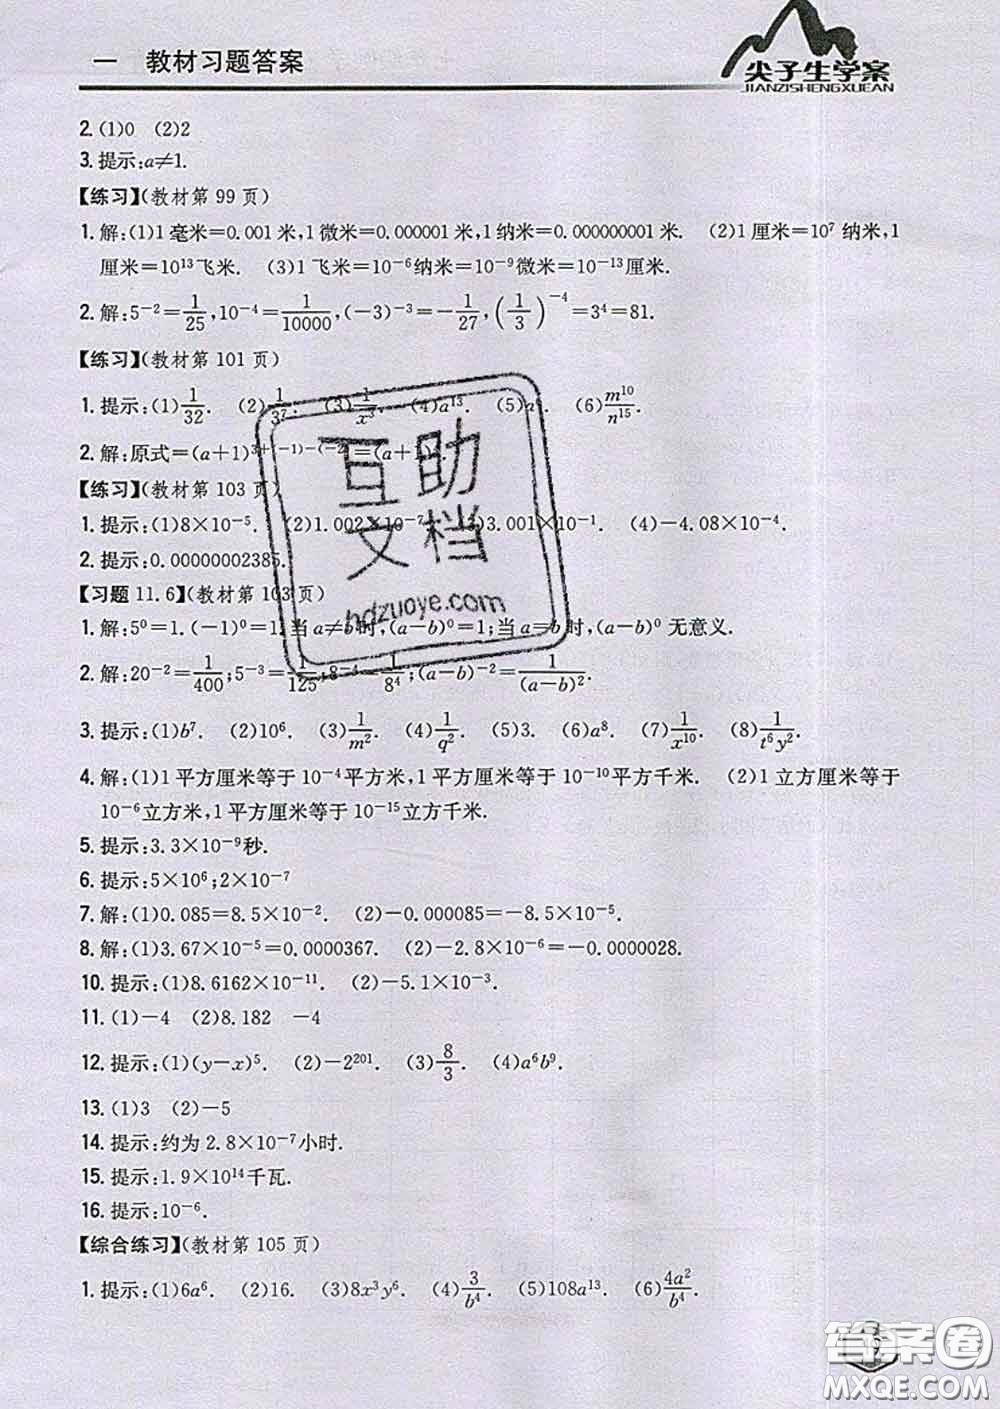 一 教材习题答案
尖子生学案
JIANZISHENGXUEAN
2. (1)0 (2)2
3. 提示:a≠1.
【练习】(教材第 99 页)
1. 解:(1)1 毫米=0.001 米,1 微米=0.000001 米,1 纳米=0.000000001 米. (2)1 厘米=10⁷ 纳米,1
厘米=10¹³飞米. (3)1 飞米=10⁻⁶纳米=10⁻⁹微米=10⁻¹³厘米.
2. 解:5⁻²=1/25,10⁻⁴=1/10000,(-3)⁻³=-1/27,(1/3)⁻⁴=3⁴=81.
【练习】(教材第 101 页)
1. 提示:(1)1/32. (2)1/3⁷. (3)1/x³. (4)a¹³. (5) . (6)m¹⁰/n¹⁵.
2. 解:原式=(a+1)³⁺⁽⁻¹⁾⁻⁽⁻²⁾=(a+1) .
【练习】(教材第 103 页)
1. 提示:(1)8×10⁻⁵. (2)1.002×10⁻⁷. (3)3.001×10⁻¹. (4)-4.08×10⁻⁴.
2. 提示:0.00000002385.
【习题 11.6】(教材第 103 页)
1. 解:5⁰=1.(-1)⁰=1.当 a≠b 时,(a-b)⁰=1;当 a=b 时,(a-b)⁰ 无意义.
2. 解:20⁻²=1/400;5⁻³=1/125;8⁻⁴=1/8⁴;(a-b)⁻²=1/(a-b)².
3. 提示:(1)b⁷. (2)10⁶. (3)1/m². (4)1/q². (5)3. (6)a⁸. (7)1/x¹⁰. (8)1/t⁶y².
4. 解:(1)1 平方厘米等于 10⁻⁴平方米,1 平方厘米等于 10⁻¹⁰平方千米. (2)1 立方厘米等于
10⁻⁶立方米,1 平方厘米等于 10⁻¹⁵立方千米.
5. 提示:3.3×10⁻⁹秒.
6. 提示:5×10⁶;2×10⁻⁷
7. 解:(1)0.085=8.5×10⁻². (2)-0.000085=-8.5×10⁻⁵.
8. 解:(1)3.67×10⁻⁵=0.0000367. (2)-2.8×10⁻⁶=-0.0000028.
10. 提示:(1)8.6162×10⁻¹¹. (2)-5.1×10⁻³.
11. (1)-4 (2)8.182 -4
12. 提示:(1)(y-x)⁵. (2)-2²⁰¹. (3)8/3. (4)a⁶b⁹.
13. (1)3 (2)-5
14. 提示:约为 2.8×10⁻⁷小时.
15. 提示:1.9×10¹⁴千瓦.
16. 提示:10⁻⁶.
【综合练习】(教材第 105 页)
1. 提示:(1)6a⁶. (2)16. (3)8x³y⁶. (4)3/b⁴. (5)108a¹³. (6)4a²/b⁴.
互助
文档
hdzuoye.com
答案圈
MXQE.COM